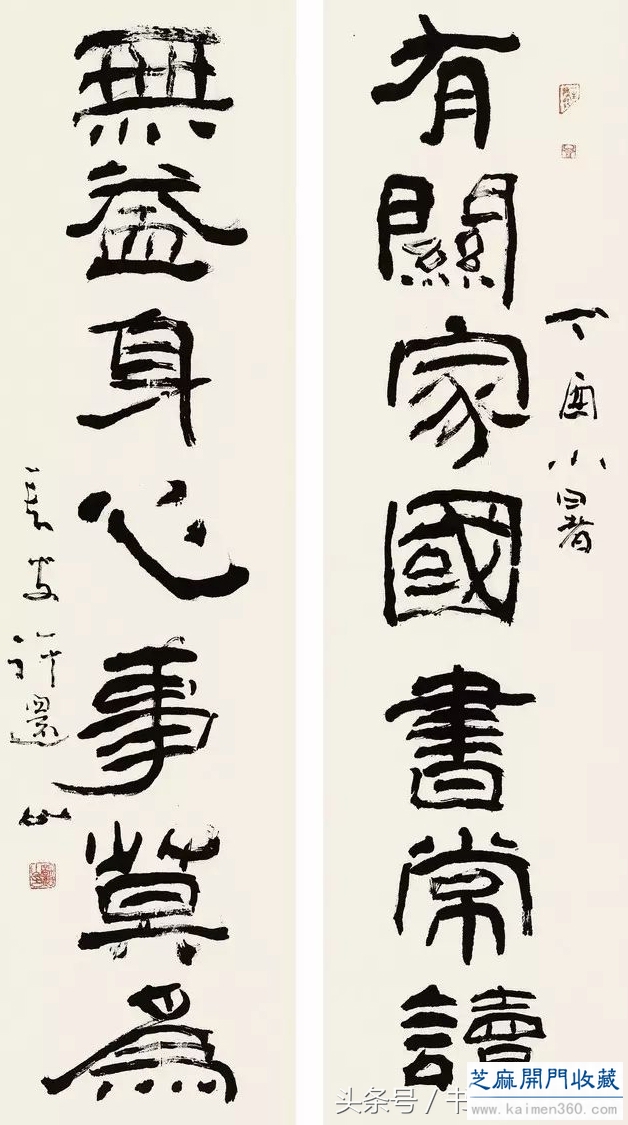 有關家國書常讀
丁酉小暑
無益身心事莫為
長安許還山
头条号 / 书
芝麻開門收藏
www.kaimen360.com